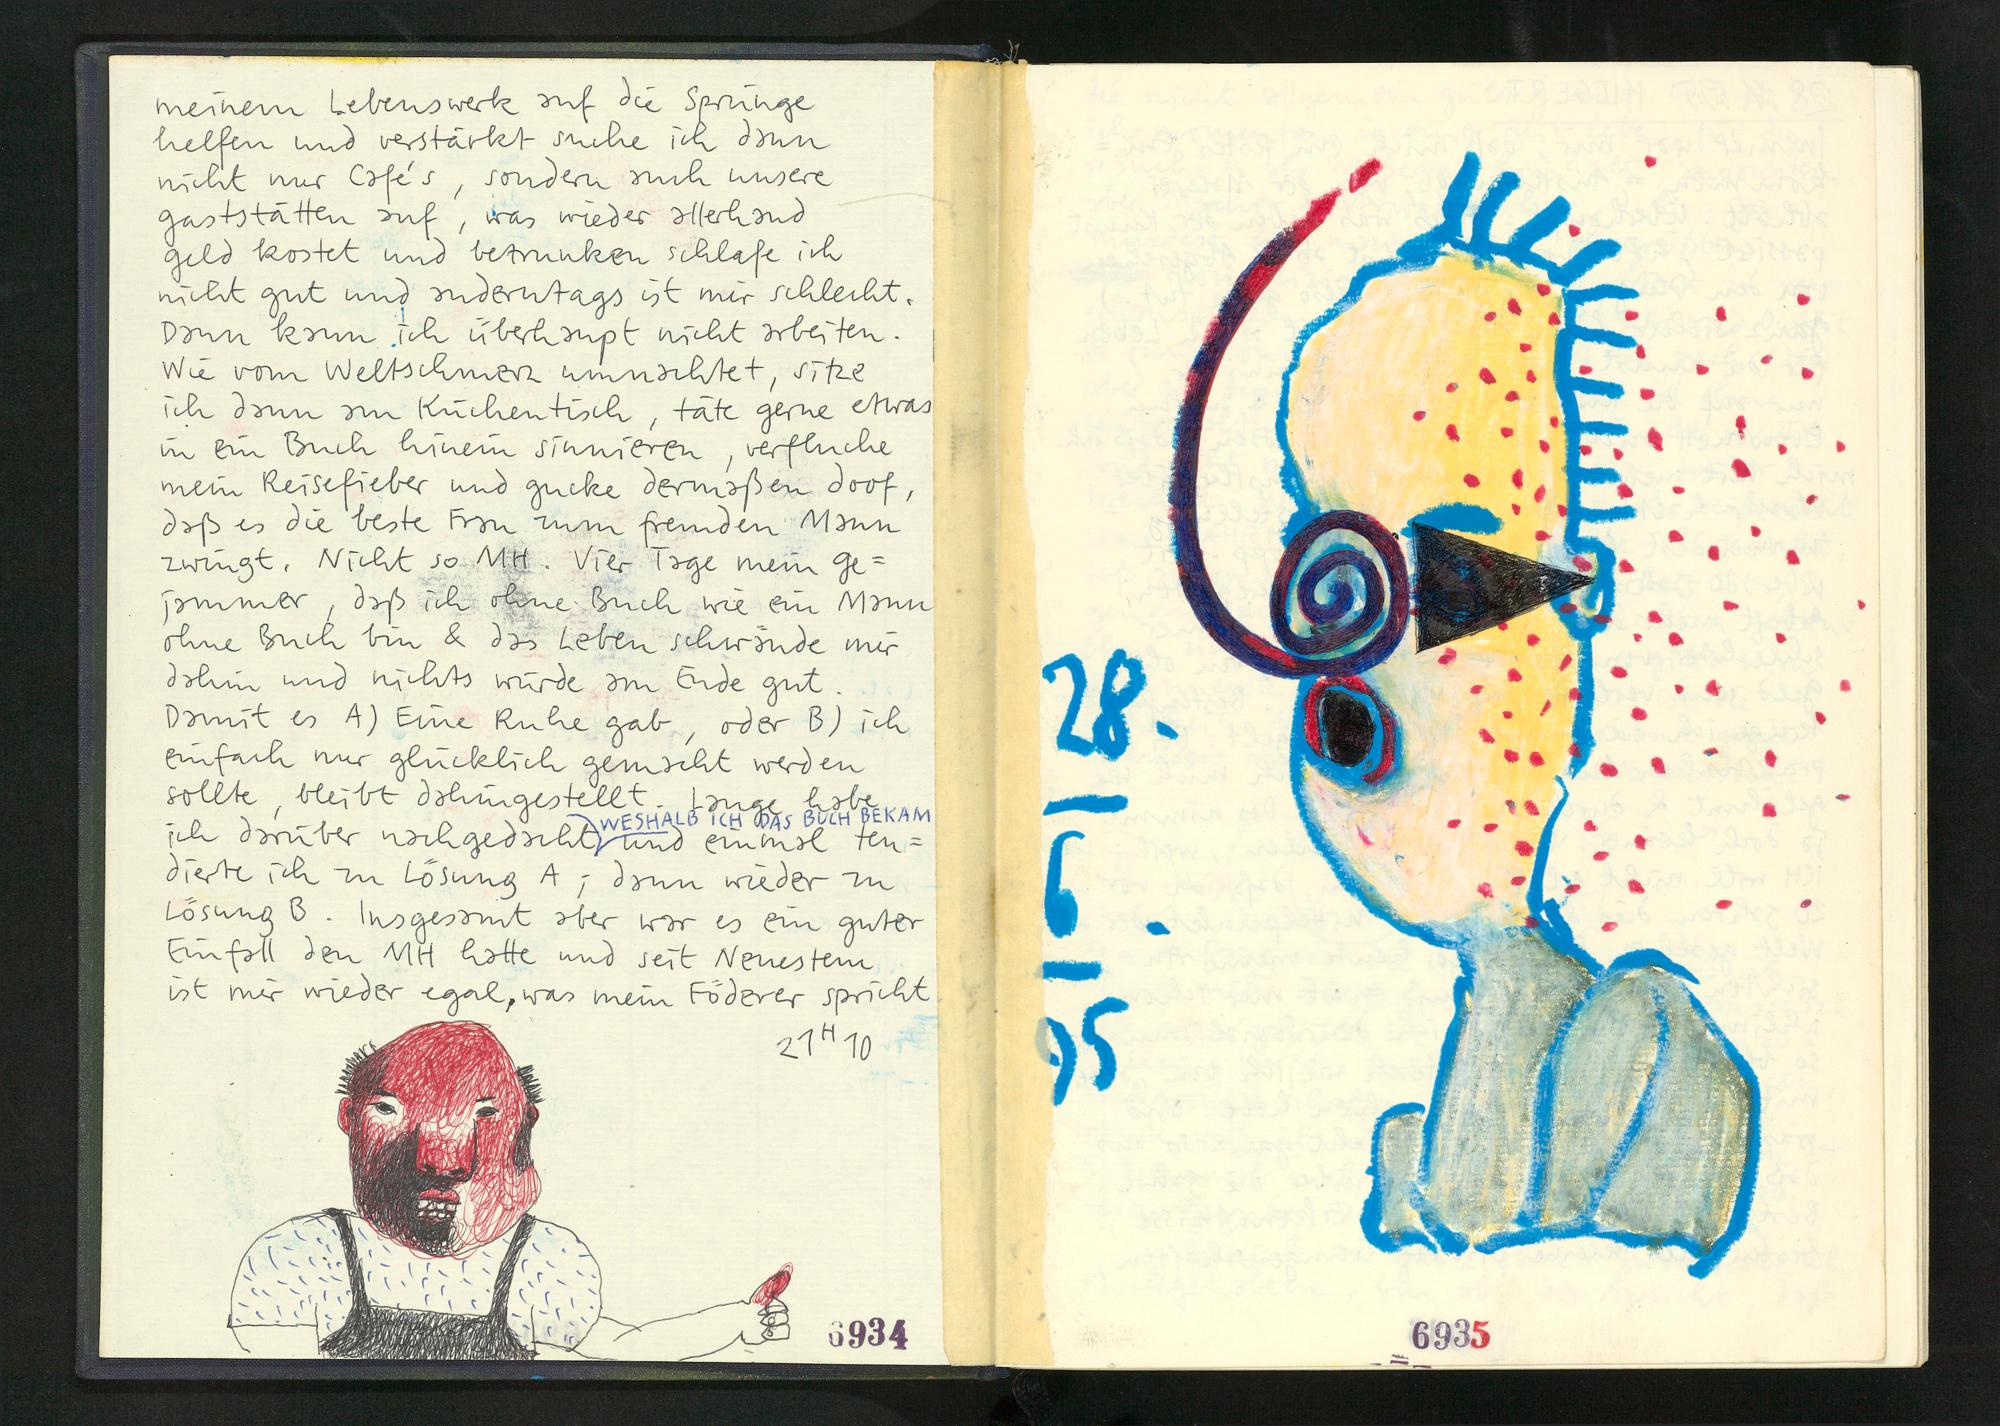 meinem Lebenswerk auf die Sprünge
helfen und verstärkt suche ich dann
nicht nur Café's, sondern auch unsere
gaststätten auf, was wieder allerhand
geld kostet und betrunken schlafe ich
nicht gut und anderntags ist mir schlecht.
Dann kann ich überhaupt nicht arbeiten.
Wie vom Weltschmerz umnachtet, sitze
ich dann am Küchentisch, täte gerne etwas
in ein Buch hinein sinnieren, verfluche
mein Reisefieber und gucke dermaßen doof,
daß es die beste Frau zum fremden Mann
zwingt. Nicht so MH. Vier Tage mein ge=
jammer, daß ich ohne Buch wie ein Mann
ohne Buch bin & das Leben schwände mir
dahin und nichts würde am Ende gut.
Damit es A) Eine Ruhe gab, oder B) ich
einfach nur glücklich gemacht werden
sollte, bleibt dahingestellt. Lange habe
WESHALB ICH DAS BUCH BEKAM
ich darüber nachgedacht, und einmal ten=
dierte ich zu Lösung A; dann wieder zu
Lösung B. Insgesamt aber war es ein guter
Einfall den MH hatte und seit Neuestem
ist mir wieder egal, was mein Föderer spricht.
21H10
6934
28.
6.
95
6935